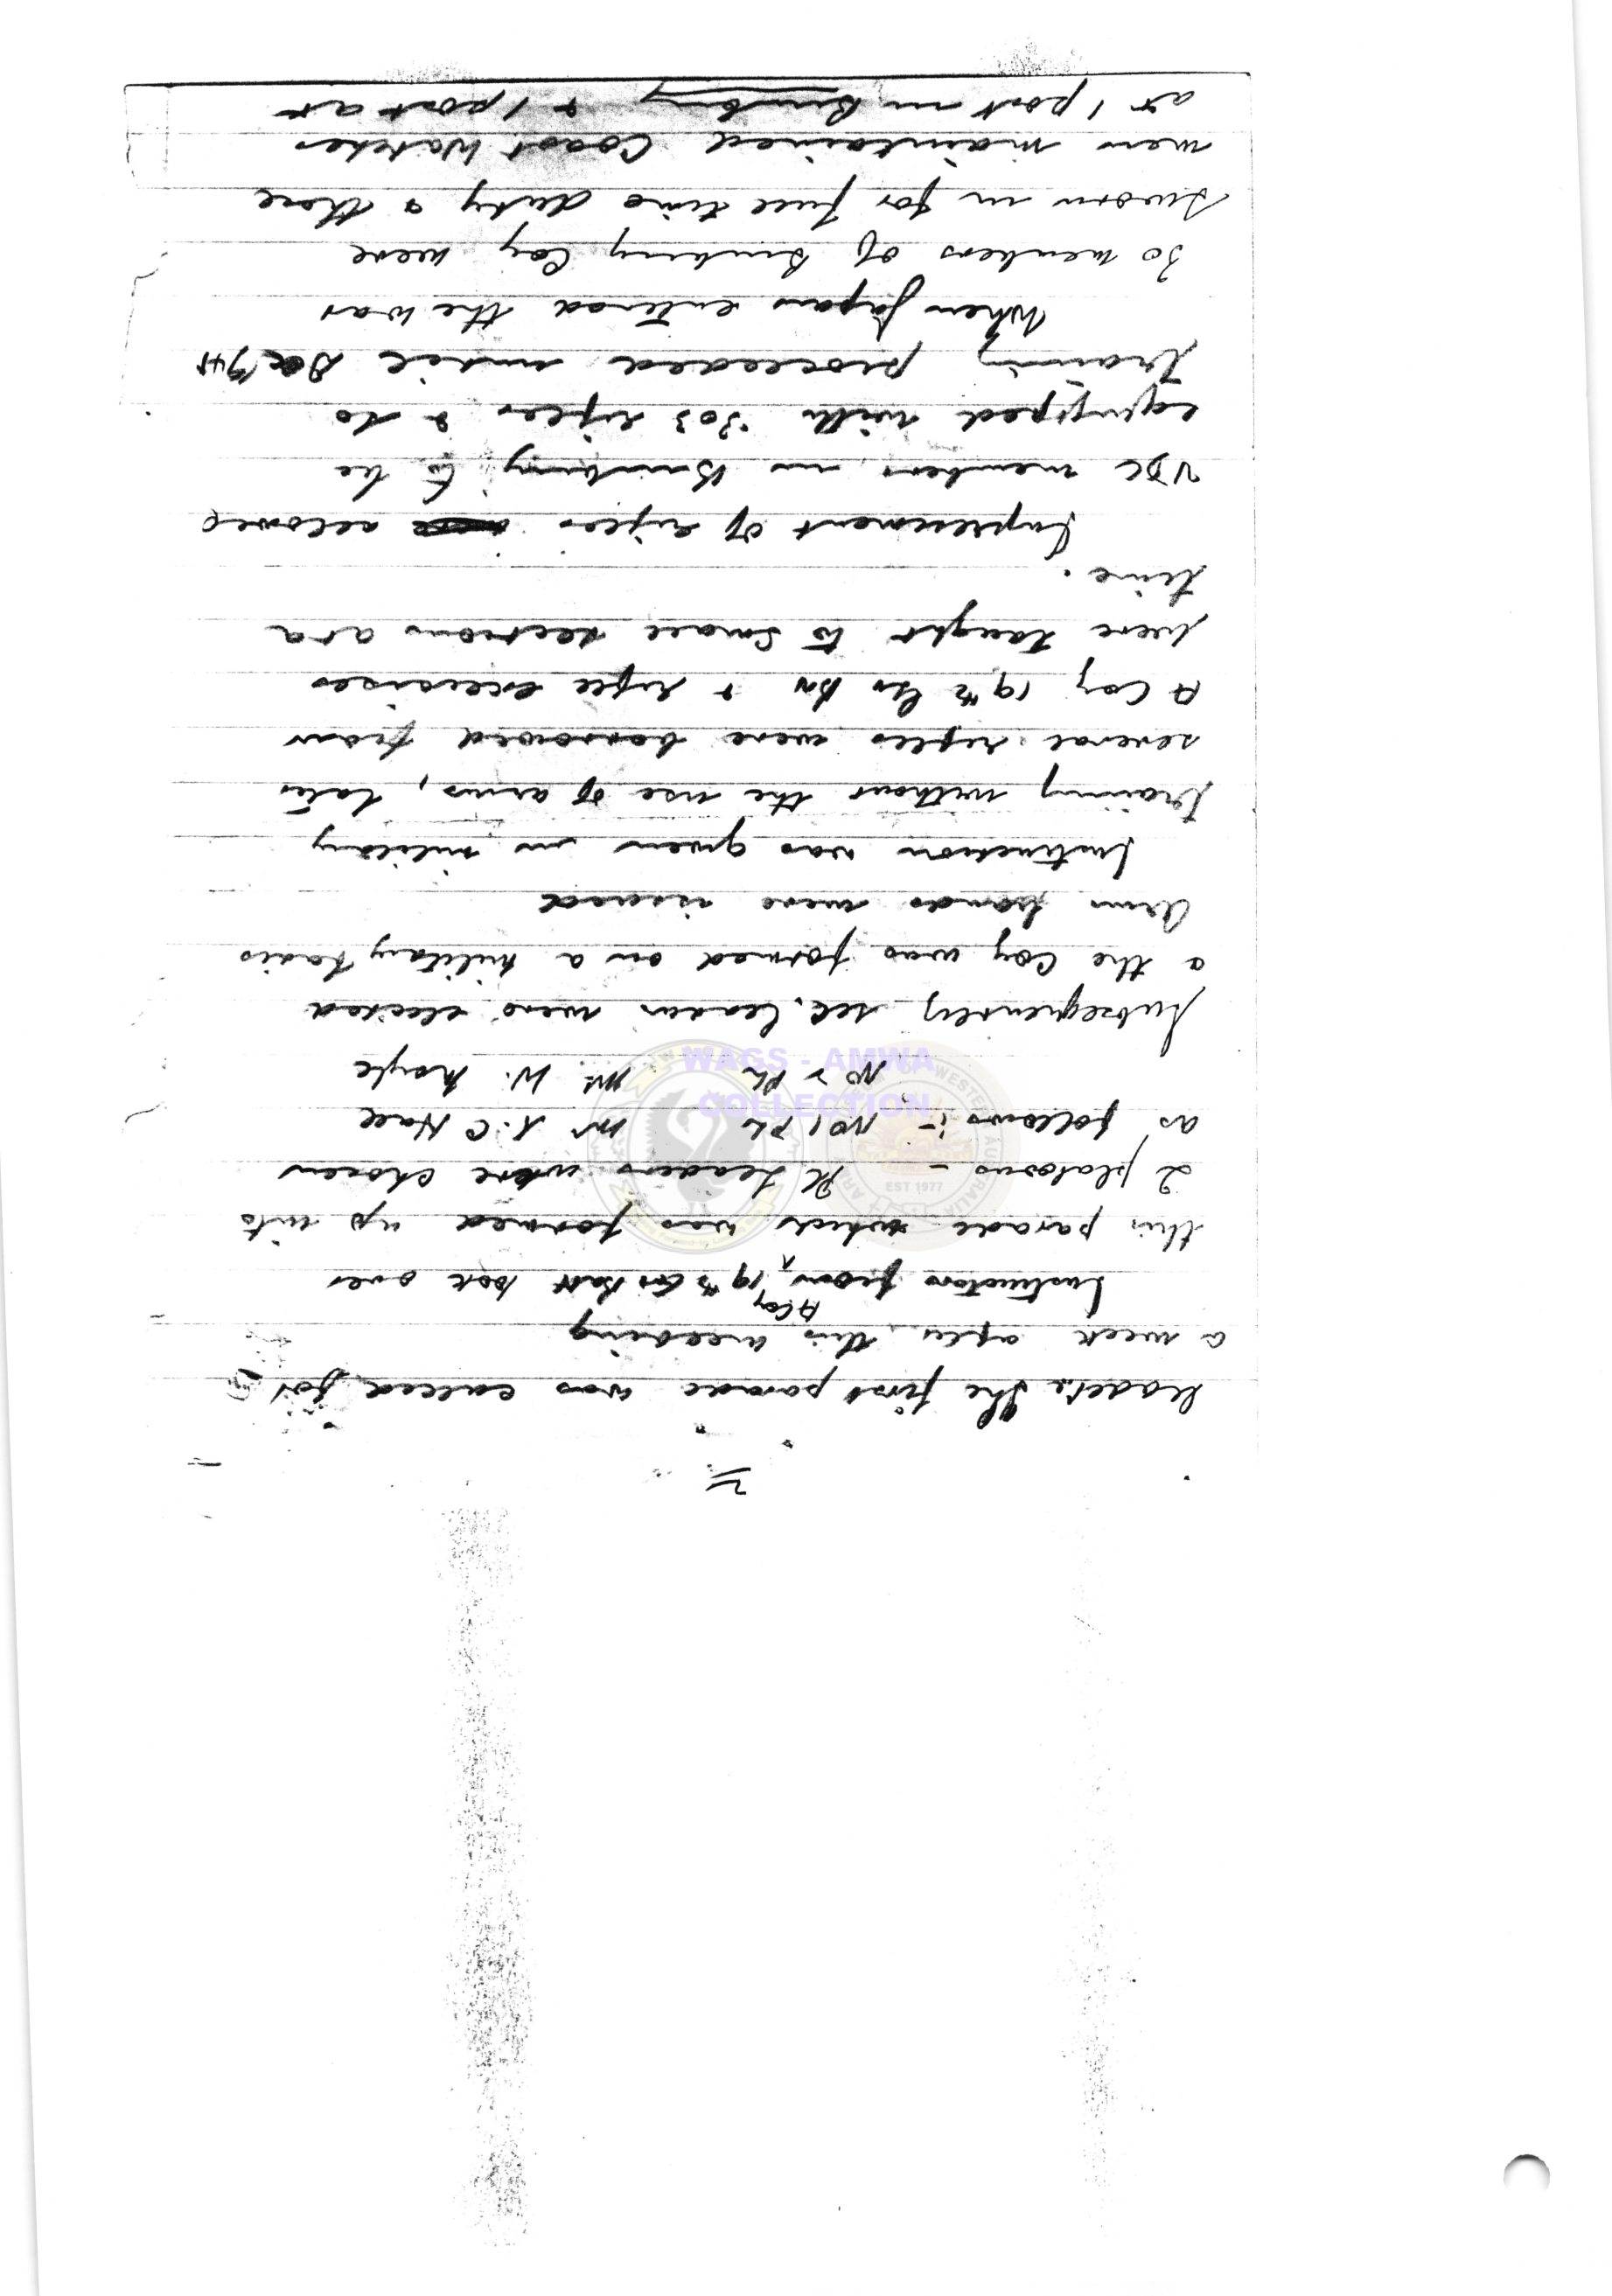 2
leaders. The first parade was called for
a week after this meeting
Instructors from A Coy 19th Gn Batt took over
this parade which was formed up into
2 platoons - Pl Leaders were chosen
as follows :- No 1 PL Mr J. C Hall
No 2 PL Mr W. Hoyle
Subsequently sec. leaders were elected
& the Coy was formed on a military basis
Arm bands were issued
Instruction was given in military
training without the use of arms, later
several rifles were borrowed from
A Coy 19th Gn Bn & rifle exercises
were taught to small sections at a
time.
Impressment of rifles allowed
VDC members in Bunbury to be
equipped with .303 rifles & so
training proceeded until Dec 1941
When Japan entered the war
30 members of Bunbury Coy were
sworn in for full time duty & these
men maintained Coast Watches
at 1 post in Bunbury & 1 post at
WAGS - AMWA
COLLECTION
EST 1977